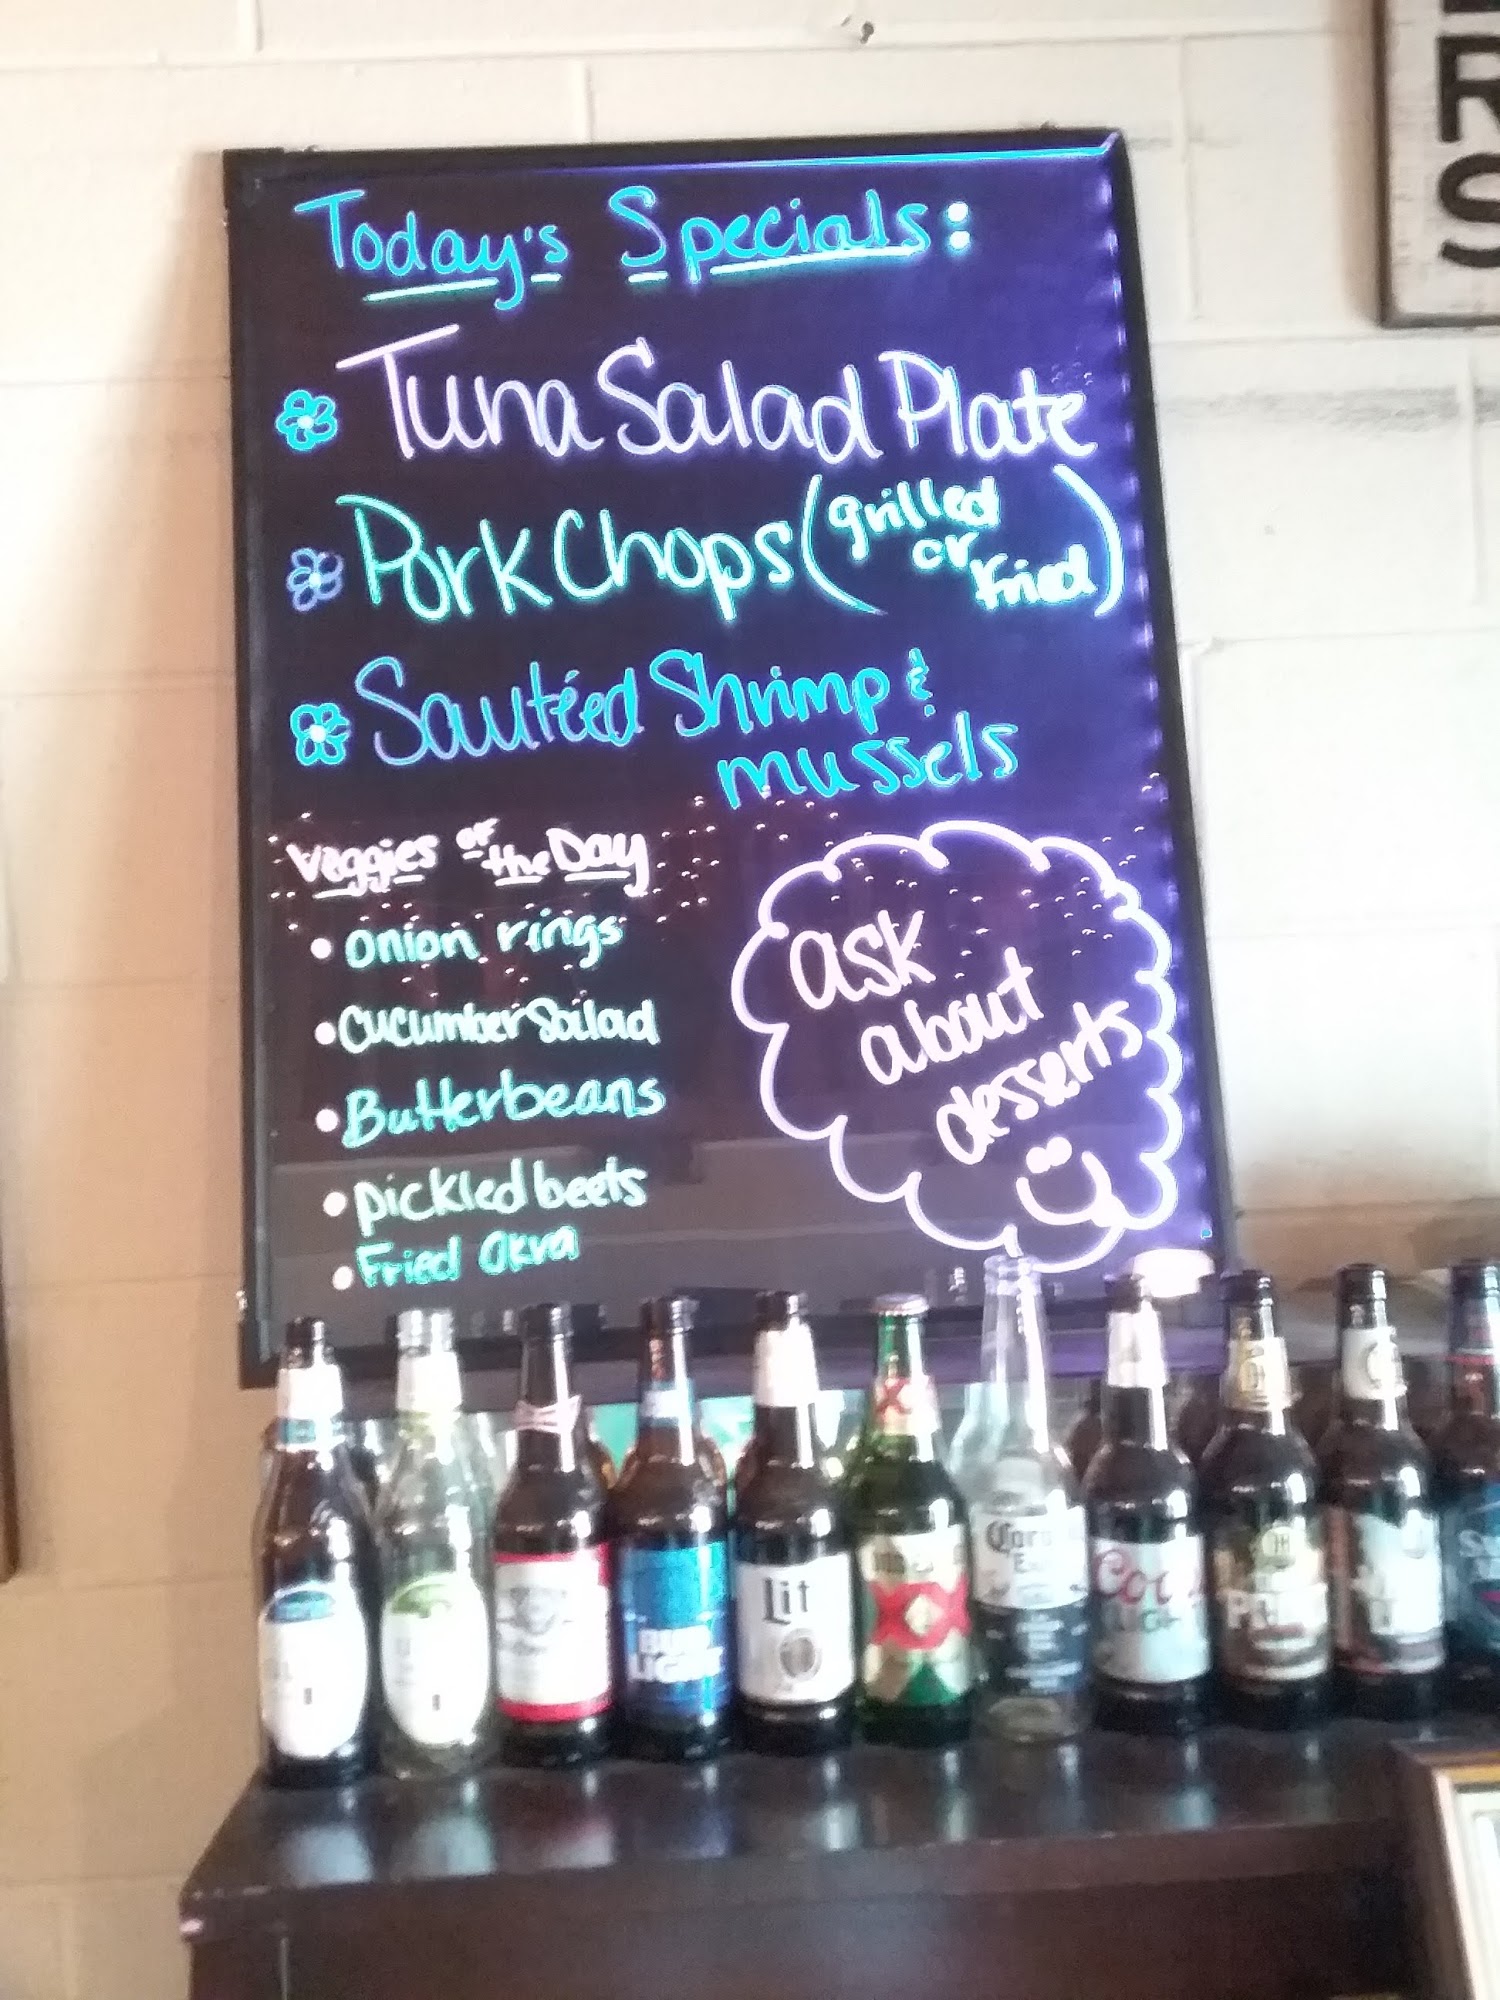 Today's Specials:
Tuna Salad Plate
Pork Chops (grilled
or
fried)
Sautéed Shrimp &
mussels
Veggies of the Day
• onion rings
• Cucumber Salad
• Butterbeans
• pickled beets
• Fried Okra
ask
about
desserts
RS
BUD
LIGHT
Lit
XX
Corona
Extra
Coors
LIGHT